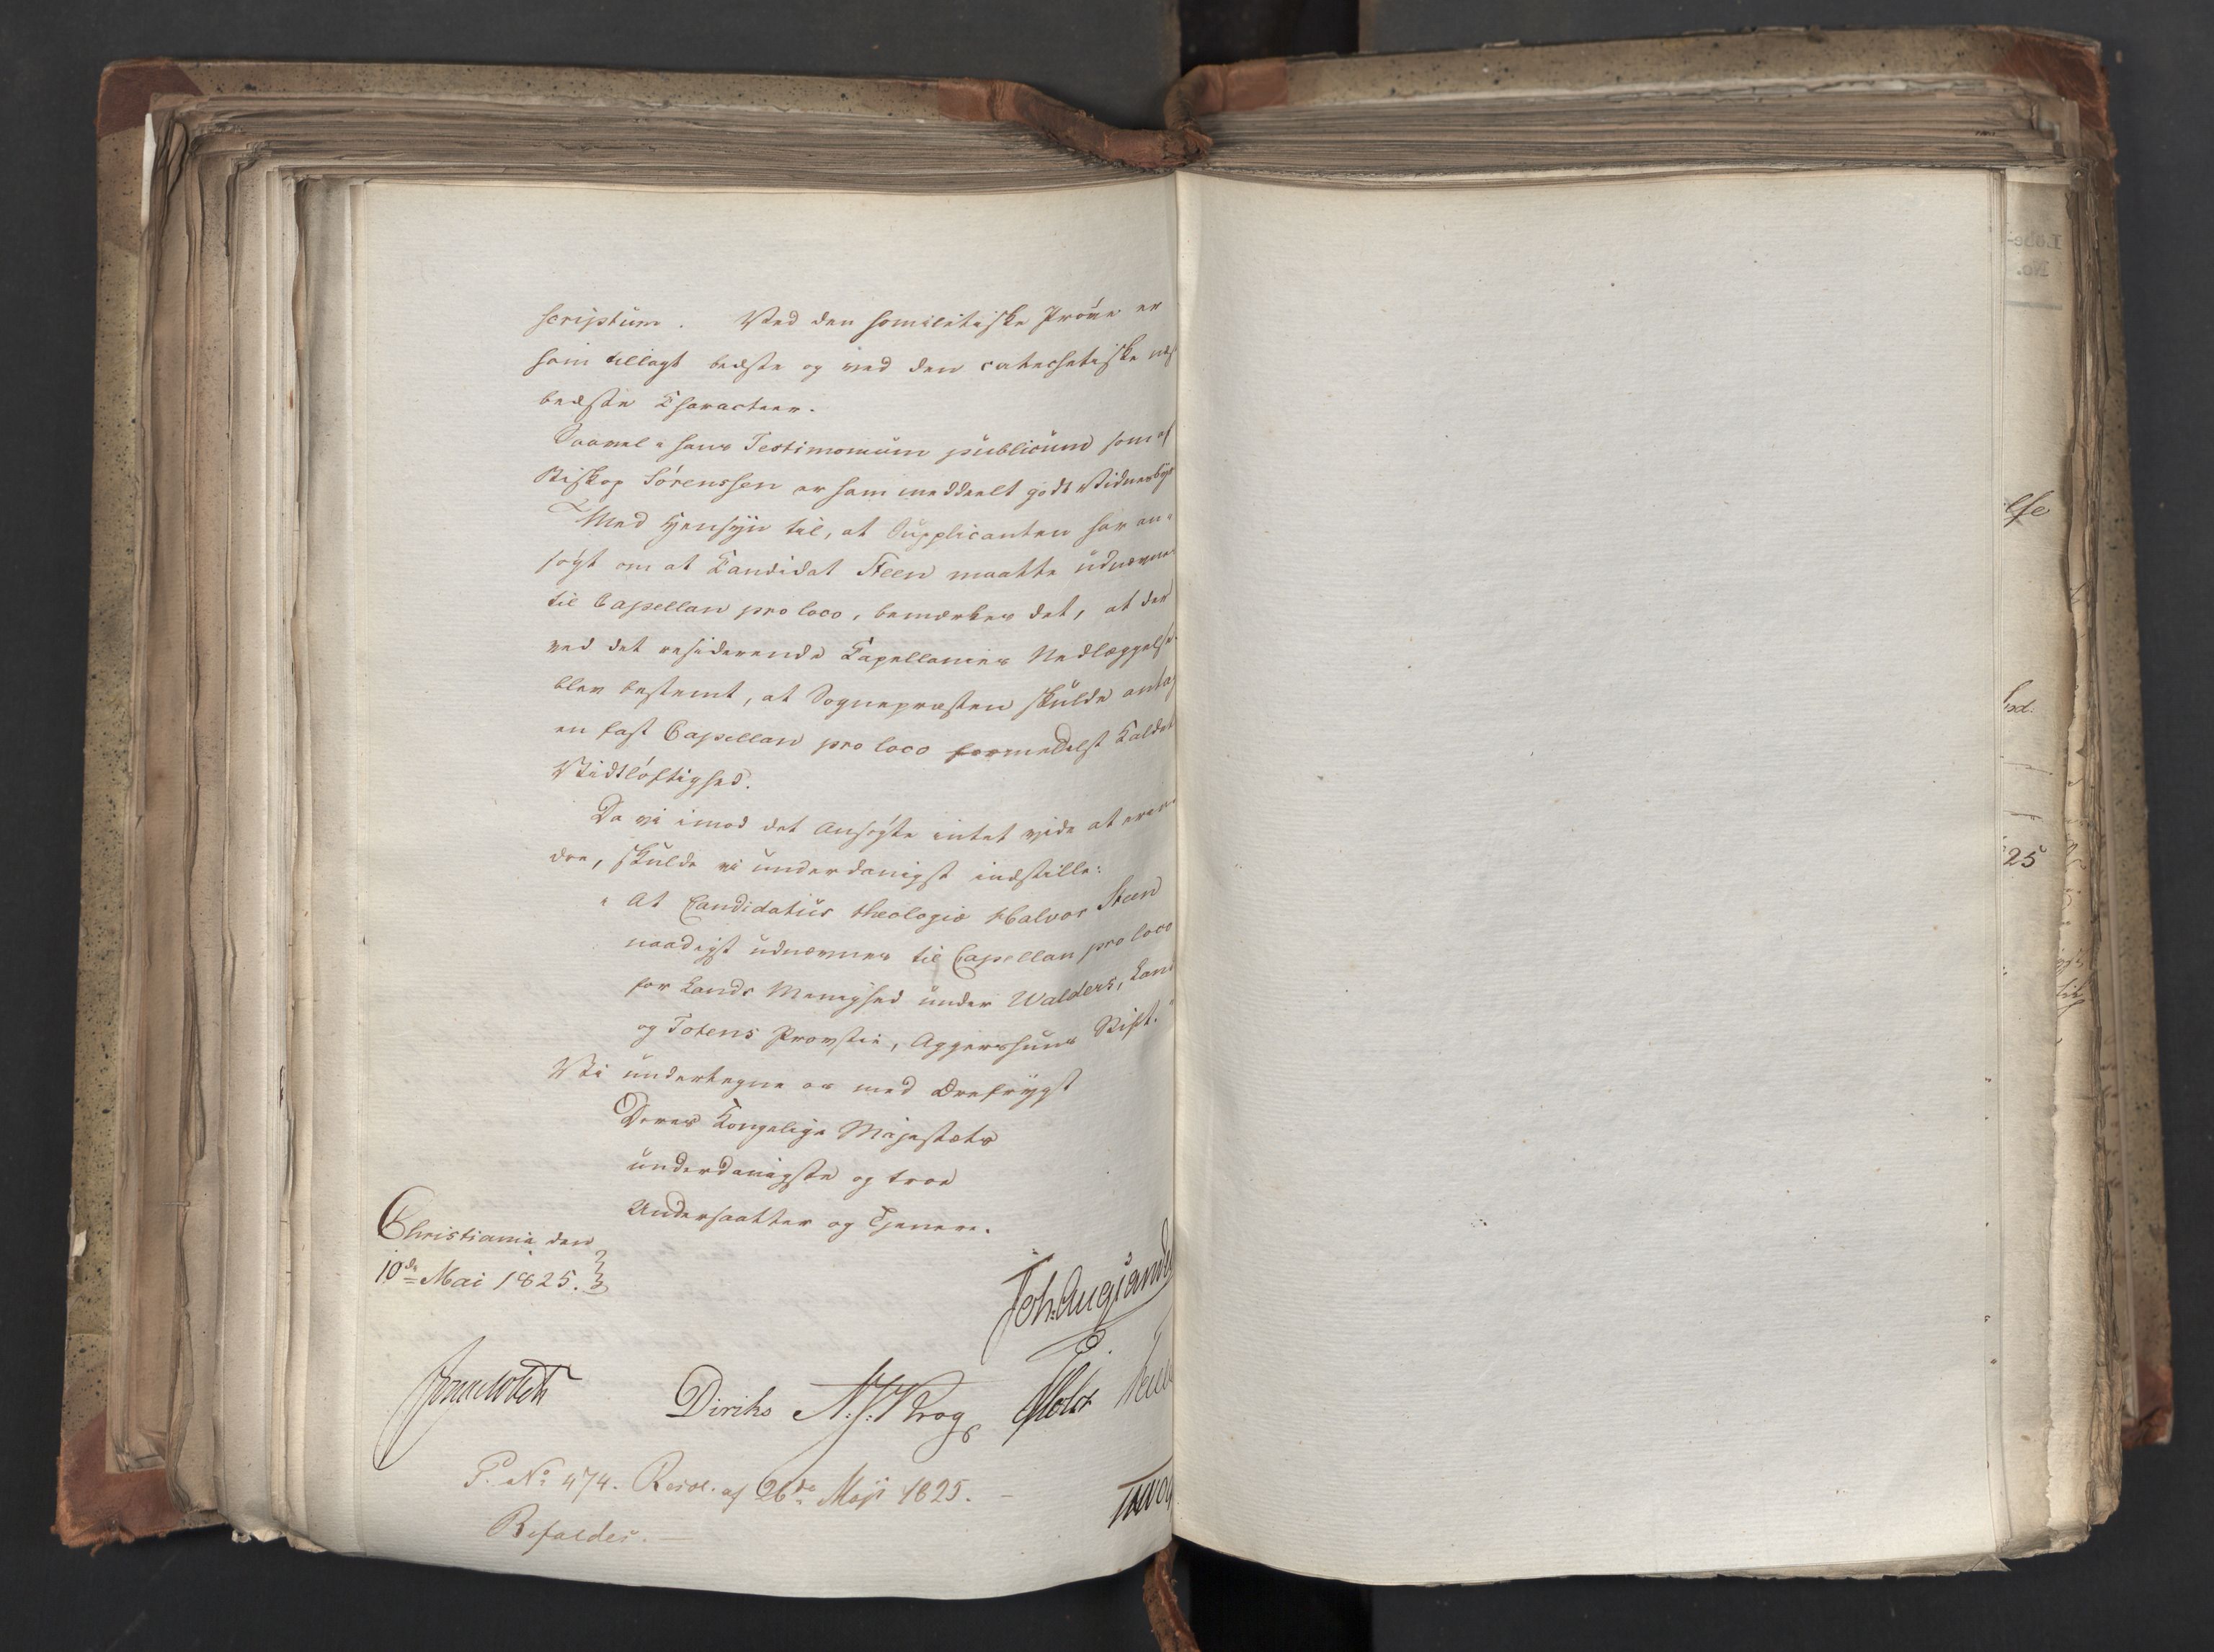 scriptum. Ved den homiletiske Prøve er
ham tillagt bedste og ved den catechetiske næst
bedste Characteer.
Saavel i hans Testimonium publicum som af
Biskop Sørenssen er ham meddeelt godt Vidnesbyr
Med Hensyn til, at Supplicanten har an-
søgt om at Candidat Steen maatte udnævnes
til Capellan pro loco, bemærkes det, at der
ved det residerende Capellanies Nedlæggelse
blev bestemt, at Sognepræsten skulde antag
en fast Capellan pro loco formedelst Kaldets
Vidtløftighed.
Da vi imod det Ansøgte intet vide at erin-
dre, skulde vi underdanigst indstille:
" At Candidatus theologiæ Halvor Steen
naadigst udnævnes til Capellan pro loco
for Lands Menighed under Walders, Land
og Totens Provstie, Aggershuus Stift."
Vi undertegne os med Ærefrygt
Deres Kongelige Majestæts
underdanigste og troe
Undersaatter og Tjenere.
Christiania den
10de Mai 1825.
Joh: Aug: Sande
Sommerfeldt
Diriks N. J. Krog Holst
P. No 474. Resol. af 26de Maji 1825. —
Bifaldes. —
lse
25